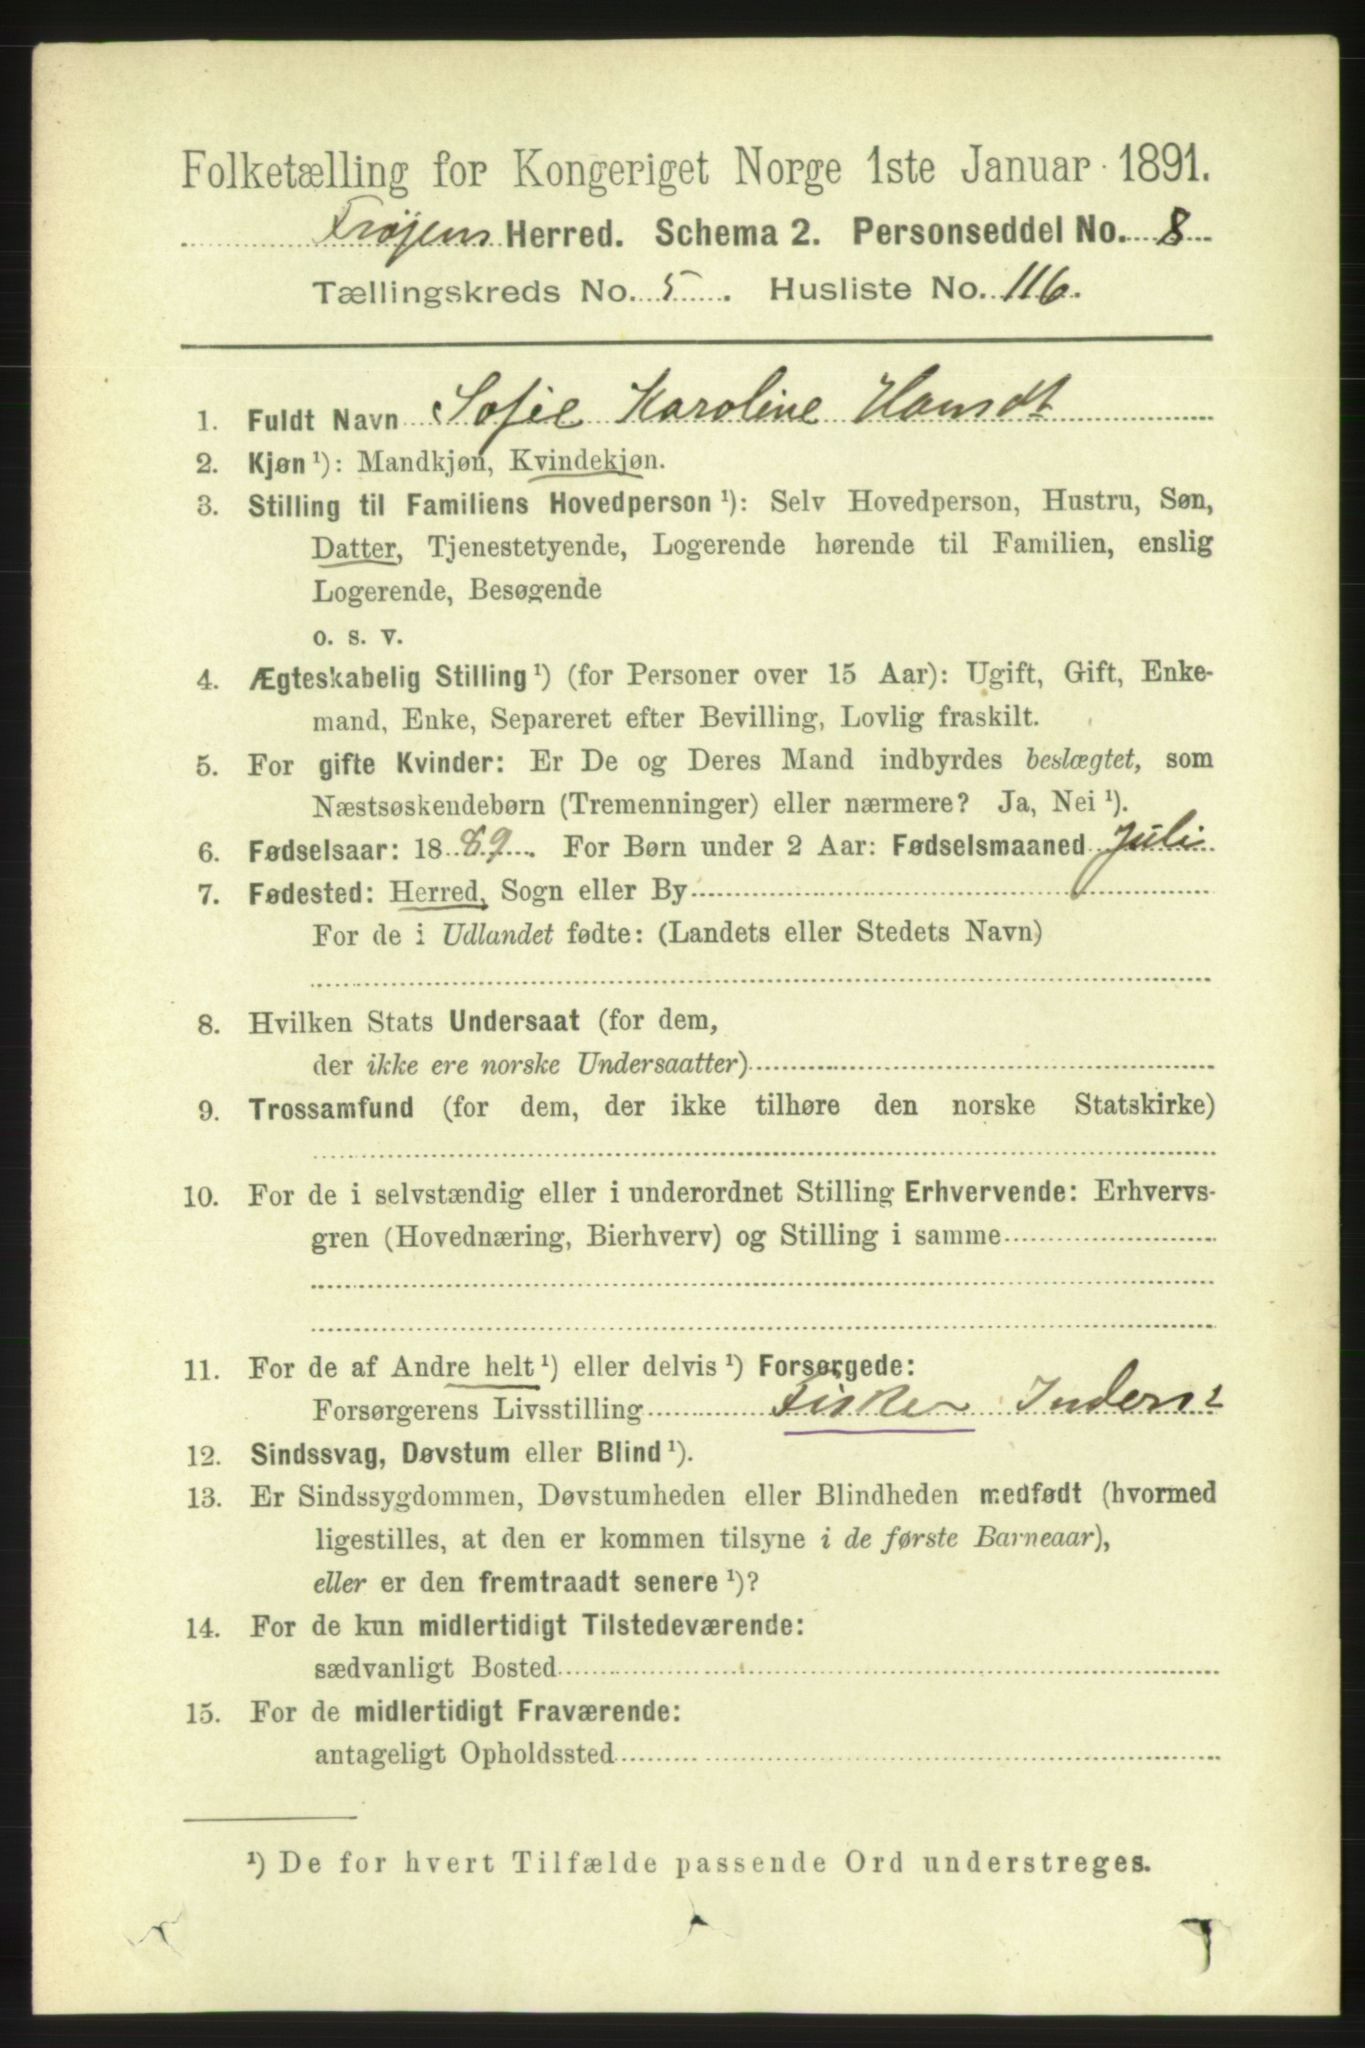 Folketælling for Kongeriget Norge 1ste Januar 1891.
Frøjens Herred. Schema 2. Personseddel No. 8
Tællingskreds No. 5. Husliste No. 116.
1. Fuldt Navn Sofie Karoline Hansdt
2. Kjøn ¹): Mandkjøn, Kvindekjøn.
3. Stilling til Familiens Hovedperson ¹): Selv Hovedperson, Hustru, Søn,
Datter, Tjenestetyende, Logerende hørende til Familien, enslig
Logerende, Besøgende
o. s. v.
4. Ægteskabelig Stilling ¹) (for Personer over 15 Aar): Ugift, Gift, Enke-
mand, Enke, Separeret efter Bevilling, Lovlig fraskilt.
5. For gifte Kvinder: Er De og Deres Mand indbyrdes beslægtet, som
Næstsøskendebørn (Tremenninger) eller nærmere? Ja, Nei ¹).
6. Fødselsaar: 1889. For Børn under 2 Aar: Fødselsmaaned Juli
7. Fødested: Herred, Sogn eller By
For de i Udlandet fødte: (Landets eller Stedets Navn)
8. Hvilken Stats Undersaat (for dem,
der ikke ere norske Undersaatter)
9. Trossamfund (for dem, der ikke tilhøre den norske Statskirke)
10. For de i selvstændig eller i underordnet Stilling Erhvervende: Erhvervs-
gren (Hovednæring, Bierhverv) og Stilling i samme
11. For de af Andre helt ¹) eller delvis ¹) Forsørgede:
Forsørgerens Livsstilling Fisker
12. Sindssvag, Døvstum eller Blind ¹).
13. Er Sindssygdommen, Døvstumheden eller Blindheden medfødt (hvormed
ligestilles, at den er kommen tilsyne i de første Barneaar),
eller er den fremtraadt senere ¹)?
14. For de kun midlertidigt Tilstedeværende:
sædvanligt Bosted
15. For de midlertidigt Fraværende:
antageligt Opholdssted
¹) De for hvert Tilfælde passende Ord understreges.